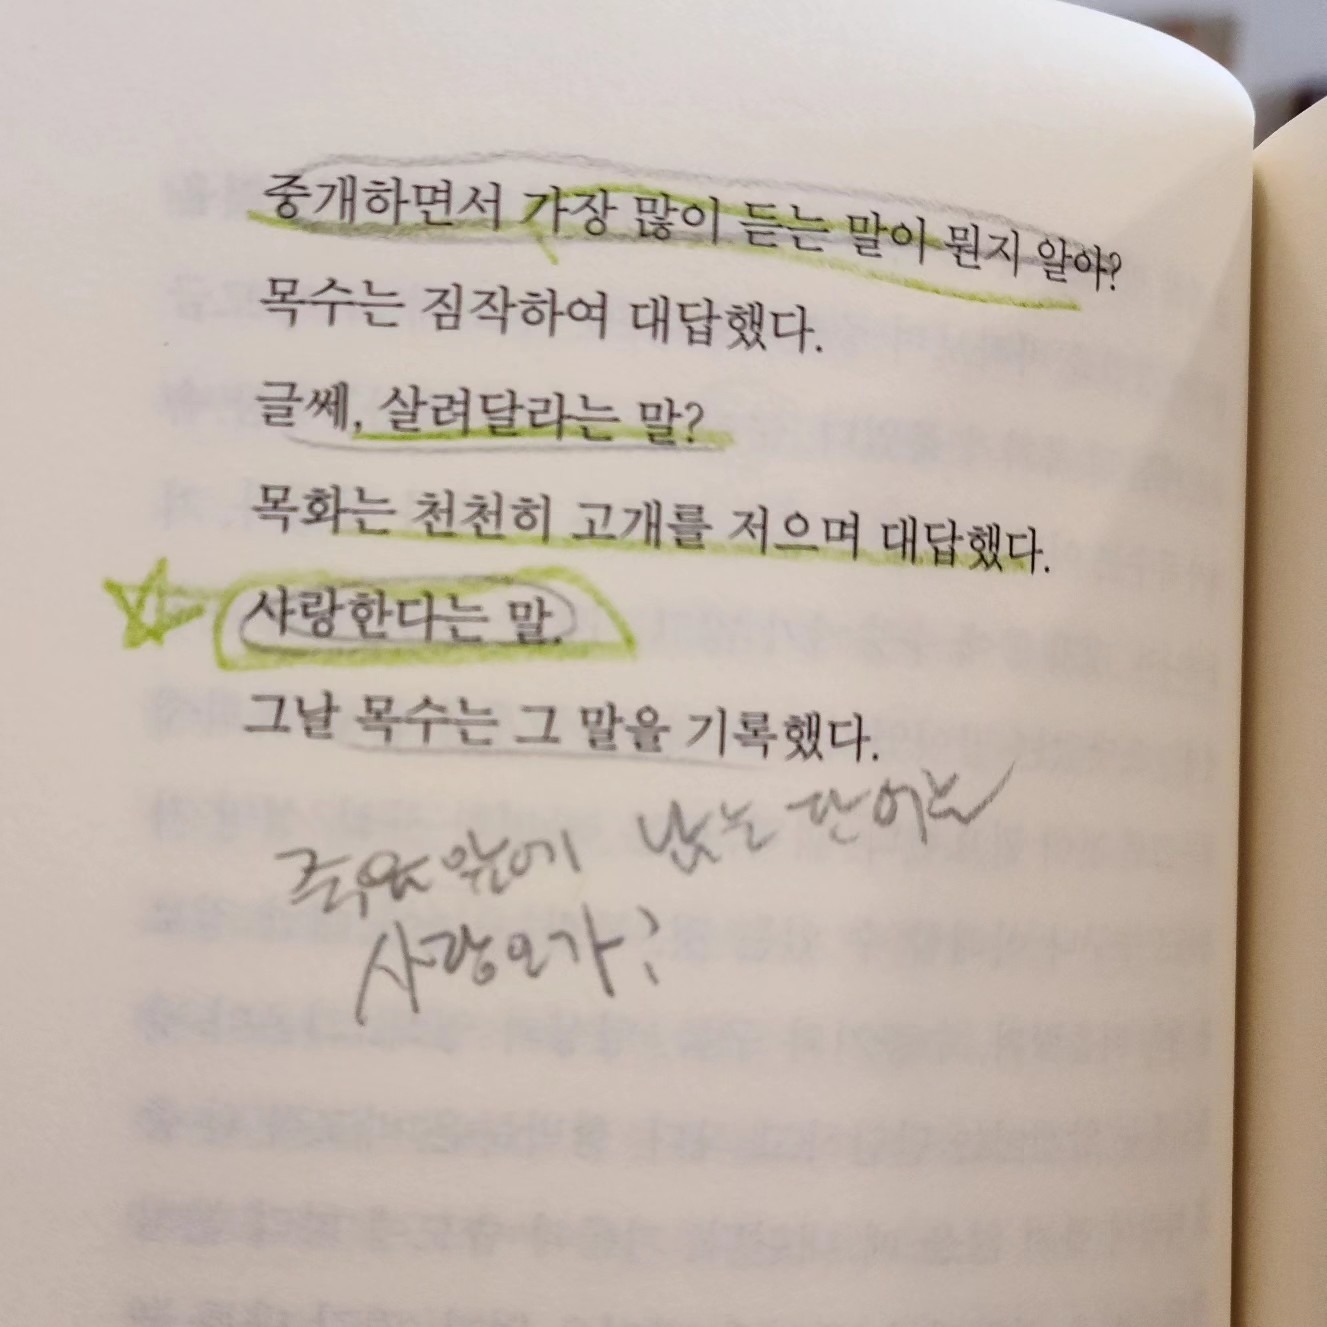 중개하면서 가장 많이 듣는 말이 뭔지 알아?
목수는 짐작하여 대답했다.
글쎄, 살려달라는 말?
목화는 천천히 고개를 저으며 대답했다.
사랑한다는 말.
그날 목수는 그 말을 기록했다.
죽음 앞에 남는 단어는
사랑인가?